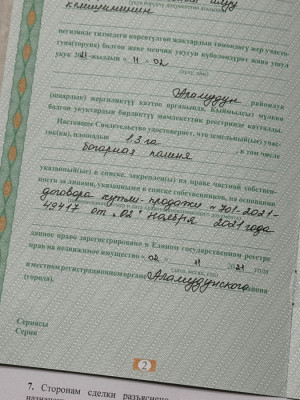 негизинде тизмеде көрсөтүлгөн жактардын төмөнкү жер участогуна(торуна) болгон жеке менчик укугун күбөлөндүрөт жана ушул
укук 2021-жылдын « 11 » 02
(күнү, айы)
Аламүдүн районунун
(шаардык) жергиликтүү каттоо органында, Кыймылсыз мүлккө
болгон укуктардын бирдиктүү мамлекеттик реестринде катталды.
Настоящее Свидетельство удостоверяет, что земельный(ые) учас-
ток(ки), площадью 1.3 га
богарная пашня, в том числе
указанный(ые) в списке, закреплен(ы) на праве частной собствен-
ности за лицами, указанными в списке собственников, на основании
договора купли-продажи № 701-2021-
49417 от "02" ноября 2021 года
данное право зарегистрировано в Едином государственном реестре
прав на недвижимое имущество « 02 » 11 2021 года
(дата, месяц, год)
в местном регистрационном органе Аламудунского района
(города).
Сериясы
Серия
2
7. Сторонам сделки разъяснено